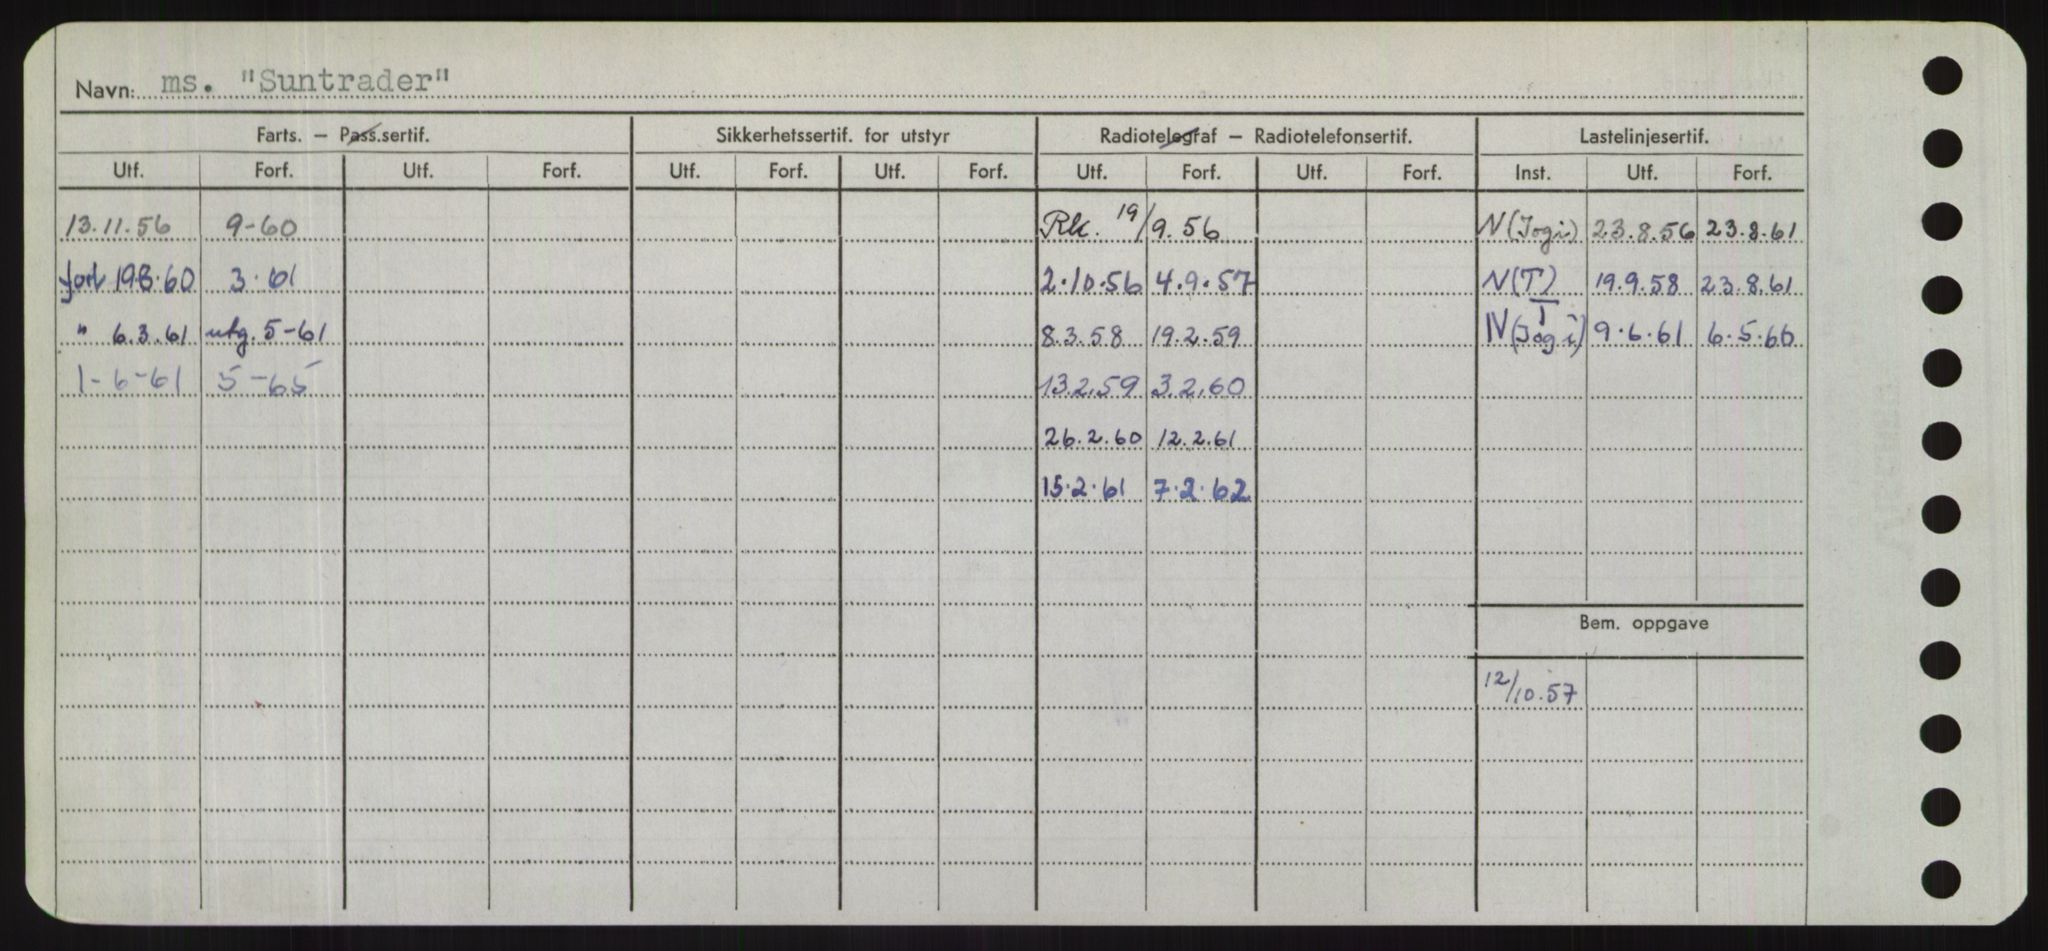 Navn: ms. "Suntrader"
Farts. — Pass.sertif. Sikkerhetssertif. for utstyr Radiotelegraf — Radiotelefonsertif. Lastelinjesertif.
Utf. Forf. Utf. Forf. Utf. Forf. Utf. Forf. Utf. Forf. Utf. Forf. Inst. Utf. Forf.
13.11.56 9-60 Rk. 19/9.56 N(Togi) 23.8.56 23.8.61
forl 19.8.60 3.61 2.10.56 4.9.57 N(T) 19.9.58 23.8.61
" 6.3.61 utg. 5-61 8.3.58 19.2.59 N(Togi) 9.6.61 6.5.66
1-6-61 5-65 13.2.59 3.2.60
26.2.60 12.2.61
15.2.61 7.2.62
Bem. oppgave
12/10.57